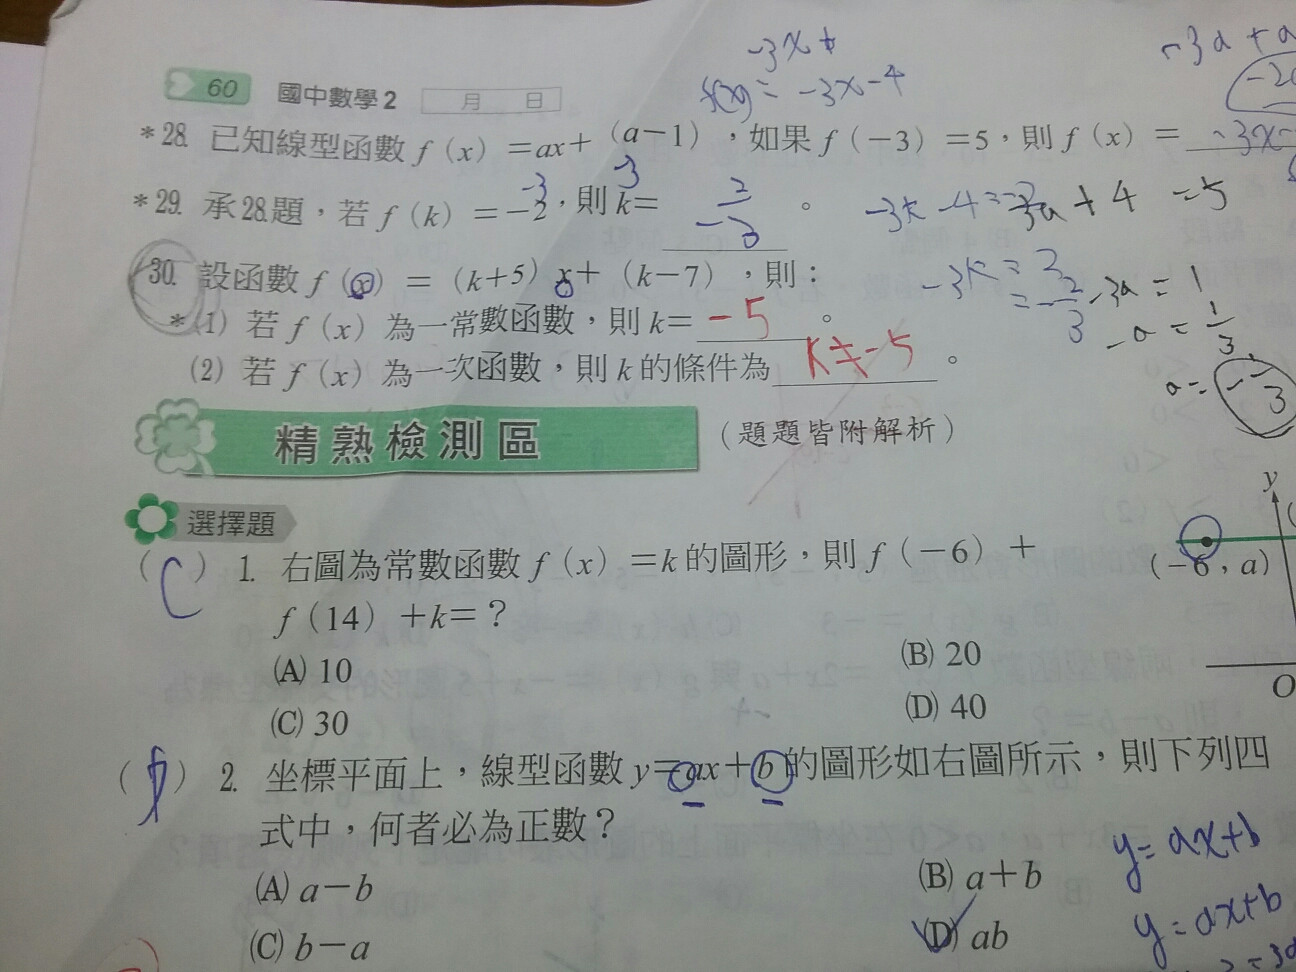 60 國中數學2 月 日
-3x+
f(x)= -3x-4
-3a+a
*28. 已知線型函數 f(x)=ax+(a-1),如果 f(-3)=5,則 f(x)= -3x-
*29. 承28.題,若 f(k)=-2,則 k= 。
-3
-3
2
-3
+4 =5
30. 設函數 f(x)=(k+5)x+(k-7),則:
-3a=1
-a=1/3
*(1) 若 f(x) 為一常數函數,則 k= -5 。
(2) 若 f(x) 為一次函數,則 k 的條件為 k≠-5 。
精熟檢測區 (題題皆附解析)
選擇題
(C) 1. 右圖為常數函數 f(x)=k 的圖形,則 f(-6)+
f(14)+k=?
(A) 10 (B) 20
(C) 30 (D) 40
y
(-6,a)
O
( ) 2. 坐標平面上,線型函數 y=ax+b 的圖形如右圖所示,則下列四
式中,何者必為正數?
(A) a-b (B) a+b
(C) b-a (D) ab
y=ax+b
y=ax+b